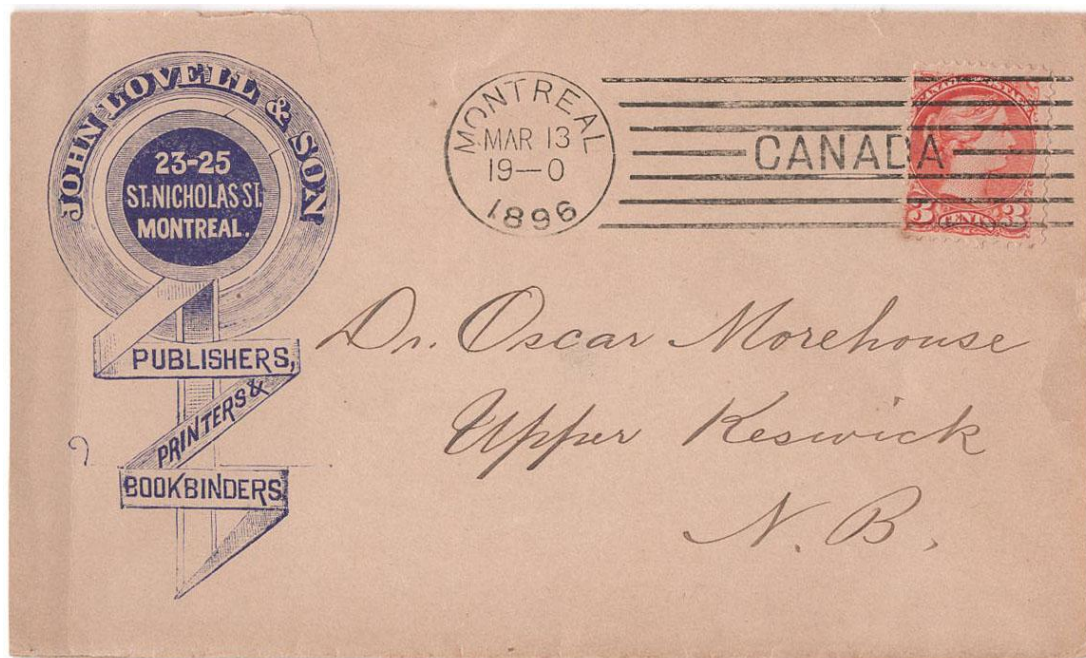 JOHN LOVELL & SON
23-25
ST. NICHOLAS ST.
MONTREAL.
PUBLISHERS,
PRINTERS &
BOOKBINDERS
MONTREAL
MAR 13
19—0
1896
CANADA
3 CENTS 3
Dr. Oscar Morehouse
Upper Keswick
N. B.